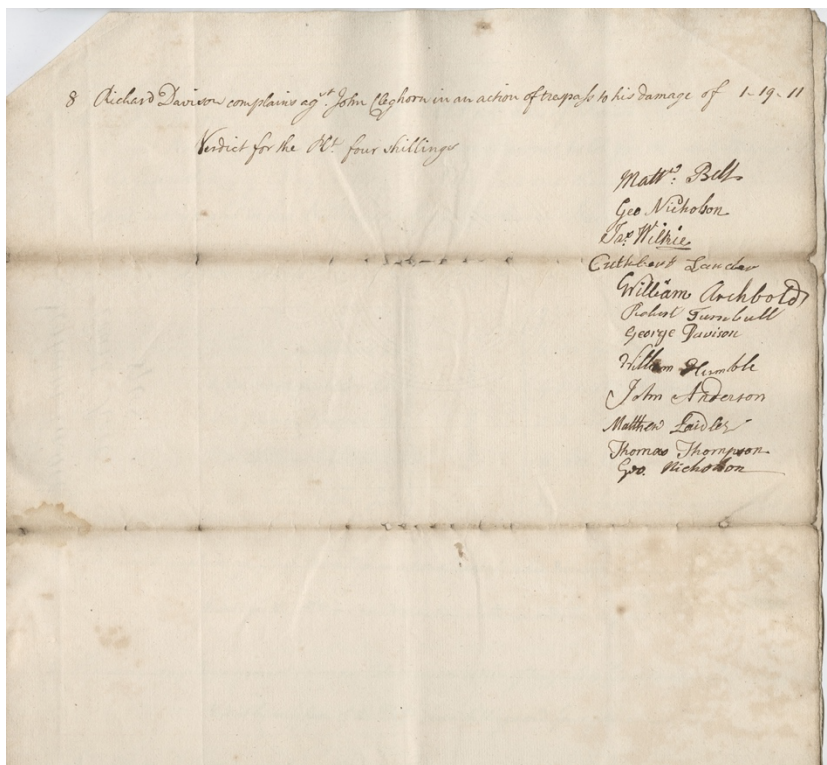 8 Richard Davison complains agst. John Cleghorn in an action of trespass to his damage of 1-19-11
Verdict for the Plt. four shillings
Mattw. Bell
Geo Nicholson
Jas. Wilkie
Cuthbert Lauder
William Archbold
Robert Turnbull
George Davison
William Humble
John Anderson
Matthew Laidler
Thomas Thompson
Geo. Nicholson